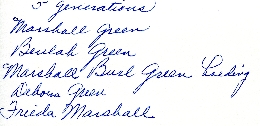 5 Generations
Marshall Green
Beulah Green
Marshall Burl Green
Debora Green
Frieda Marshall